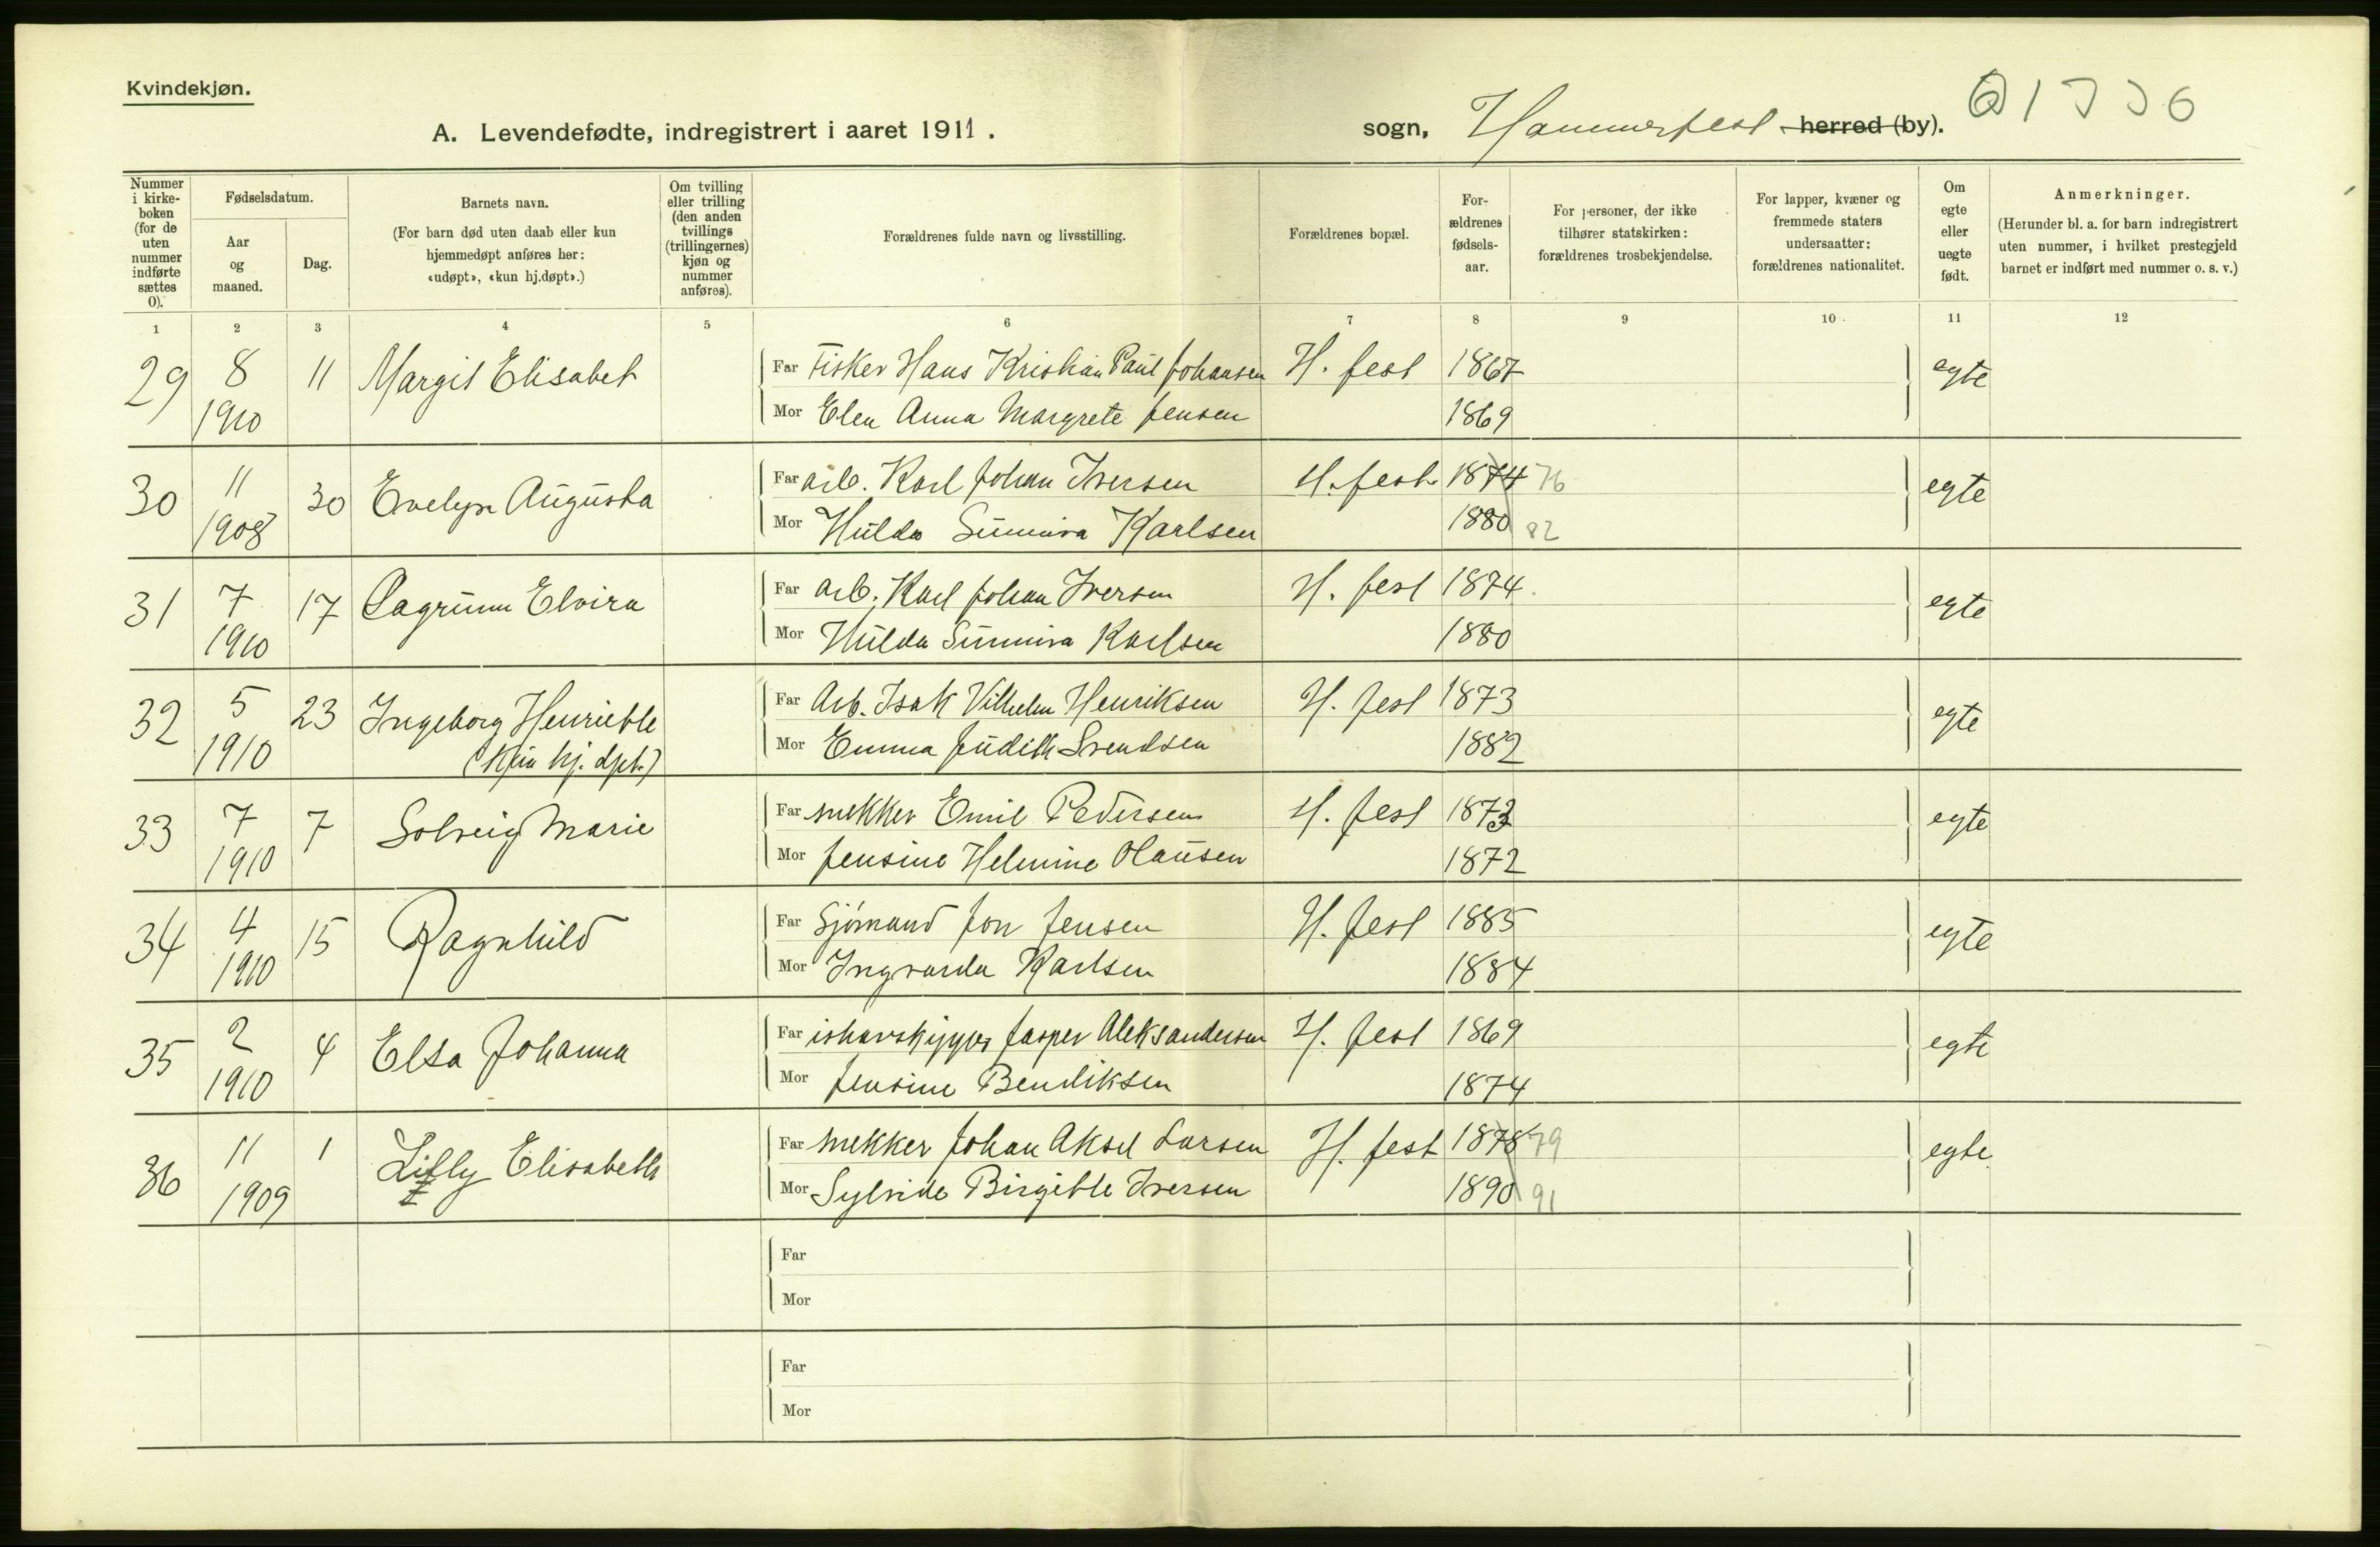 Kvindekjøn.
A. Levendefødte, indregistrert i aaret 1911.
sogn, Hammerfest herred (by).
Nummer i kirke-boken (for de uten nummer indførte sættes 0).
Fødselsdatum.
Aar og maaned.
Dag.
Barnets navn.
(For barn død uten daab eller kun hjemmedøpt anføres her: «udøpt», «kun hj.døpt».)
Om tvilling eller trilling (den anden tvillings (trillingernes) kjøn og nummer anføres).
Forældrenes fulde navn og livsstilling.
Forældrenes bopæl.
For-ældrenes fødsels-aar.
For personer, der ikke tilhører statskirken: forældrenes trosbekjendelse.
For lapper, kvæner og fremmede staters undersaatter: forældrenes nationalitet.
Om egte eller uegte født.
Anmerkninger.
(Herunder bl. a. for barn indregistrert uten nummer, i hvilket prestegjeld barnet er indført med nummer o. s. v.)
1 2 3 4 5 6 7 8 9 10 11 12
29 8 1910 11 Margit Elisabet Far Fisker Hans Kristian Paul Johansen H. fest 1867 egte
Mor Elen Anna Margrete Jensen 1869
30 11 1908 30 Evelyn Augusta Far arb. Karl Johan Iversen H. fest 1874 76 egte
Mor Hulda Sunniva Karlsen 1880 82
31 7 1910 17 Dagrunn Elvira Far Arb. Karl Johan Iversen H. fest 1874 egte
Mor Hulda Sunniva Karlsen 1880
32 5 1910 23 Ingeborg Henriette (Kun hj. dpt.) Far Arb. Isak Vilhelm Henriksen H. fest 1873 egte
Mor Emma Judith Svendsen 1882
33 7 1910 7 Solveig Marie Far snekker Emil Pedersen H. fest 1873 egte
Mor Jensine Helmine Olausen 1872
34 4 1910 15 Ragnhild Far Sjömand Jon Jensen H. fest 1885 egte
Mor Ingvarda Karlsen 1884
35 2 1910 4 Elsa Johanna Far ishavskipper Jasper Aleksandersen H. fest 1869 egte
Mor Jensine Bendiksen 1874
36 11 1909 1 Lilly Elisabeth Far snekker Johan Aksel Larsen H. fest 1878 79 egte
Mor Sylvide Birgitte Iversen 1890 91
Far
Mor
Far
Mor